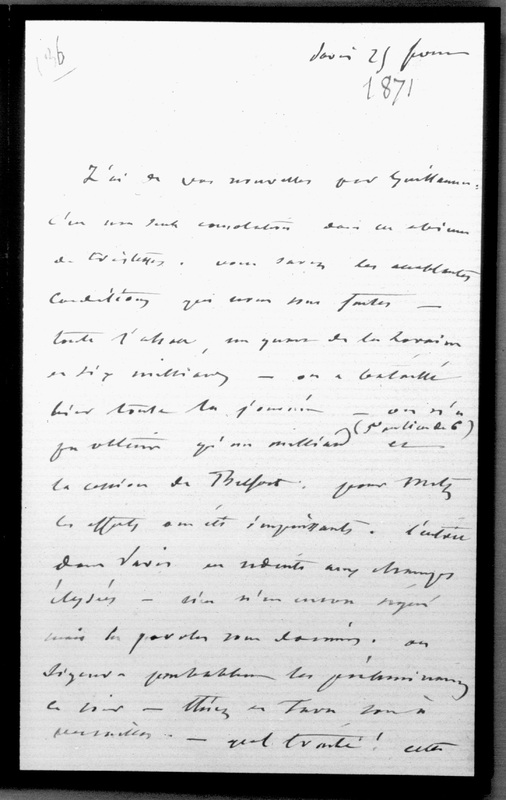 136
Paris 25 février
1871
J'ai de vos nouvelles par Guillaume.
c'est une seule consolation dans un abîme
de tristesses. vous savez les accablantes
conditions qui nous sont faites —
toute l'alsace, un quart de la Lorraine
et six milliards — on a bataillé
hier toute la journée — on n'a
pu obtenir qu'un milliard (5 au lieu de 6) et
la cession de Belfort. pour Metz
les efforts ont été impuissants. l'entrée
dans Paris est réduite aux champs
élysées — rien n'est encore signé
mais les paroles sont données. on
signera probablement les préliminaires
ce soir — thiers et favre sont à
versailles. — quel traité! cette